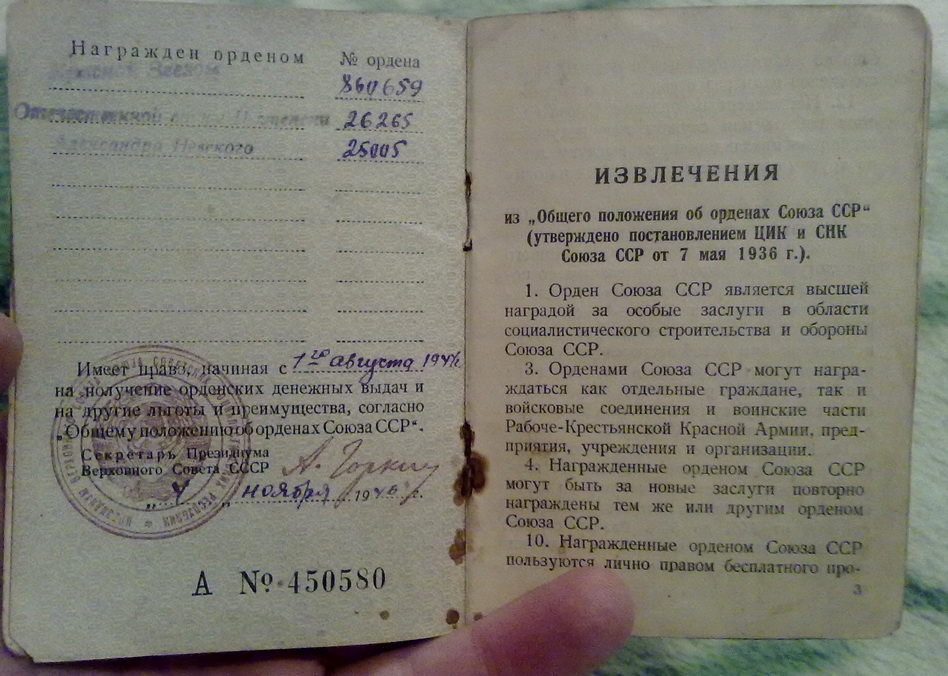 Награжден орденом
№ ордена
Красной Звезды
860659
Отечественной войны II степени
26265
Александра Невского
25005
Имеет право, начиная с 1го августа 1946
на получение орденских денежных выдач и
на другие льготы и преимущества, согласно
„Общему положению об орденах Союза ССР“.
Секретарь Президиума
Верховного Совета СССР
А. Горкин
„4„ ноября 1946 г.
А № 450580
ИЗВЛЕЧЕНИЯ
из „Общего положения об орденах Союза ССР“
(утверждено постановлением ЦИК и СНК
Союза ССР от 7 мая 1936 г.).
1. Орден Союза ССР является высшей
наградой за особые заслуги в области
социалистического строительства и обороны
Союза ССР.
3. Орденами Союза ССР могут награ-
ждаться как отдельные граждане, так и
войсковые соединения и воинские части
Рабоче-Крестьянской Красной Армии, пред-
приятия, учреждения и организации.
4. Награжденные орденом Союза ССР
могут быть за новые заслуги повторно
награждены тем же или другим орденом
Союза ССР.
10. Награжденные орденом Союза ССР
пользуются лично правом бесплатного про-
3